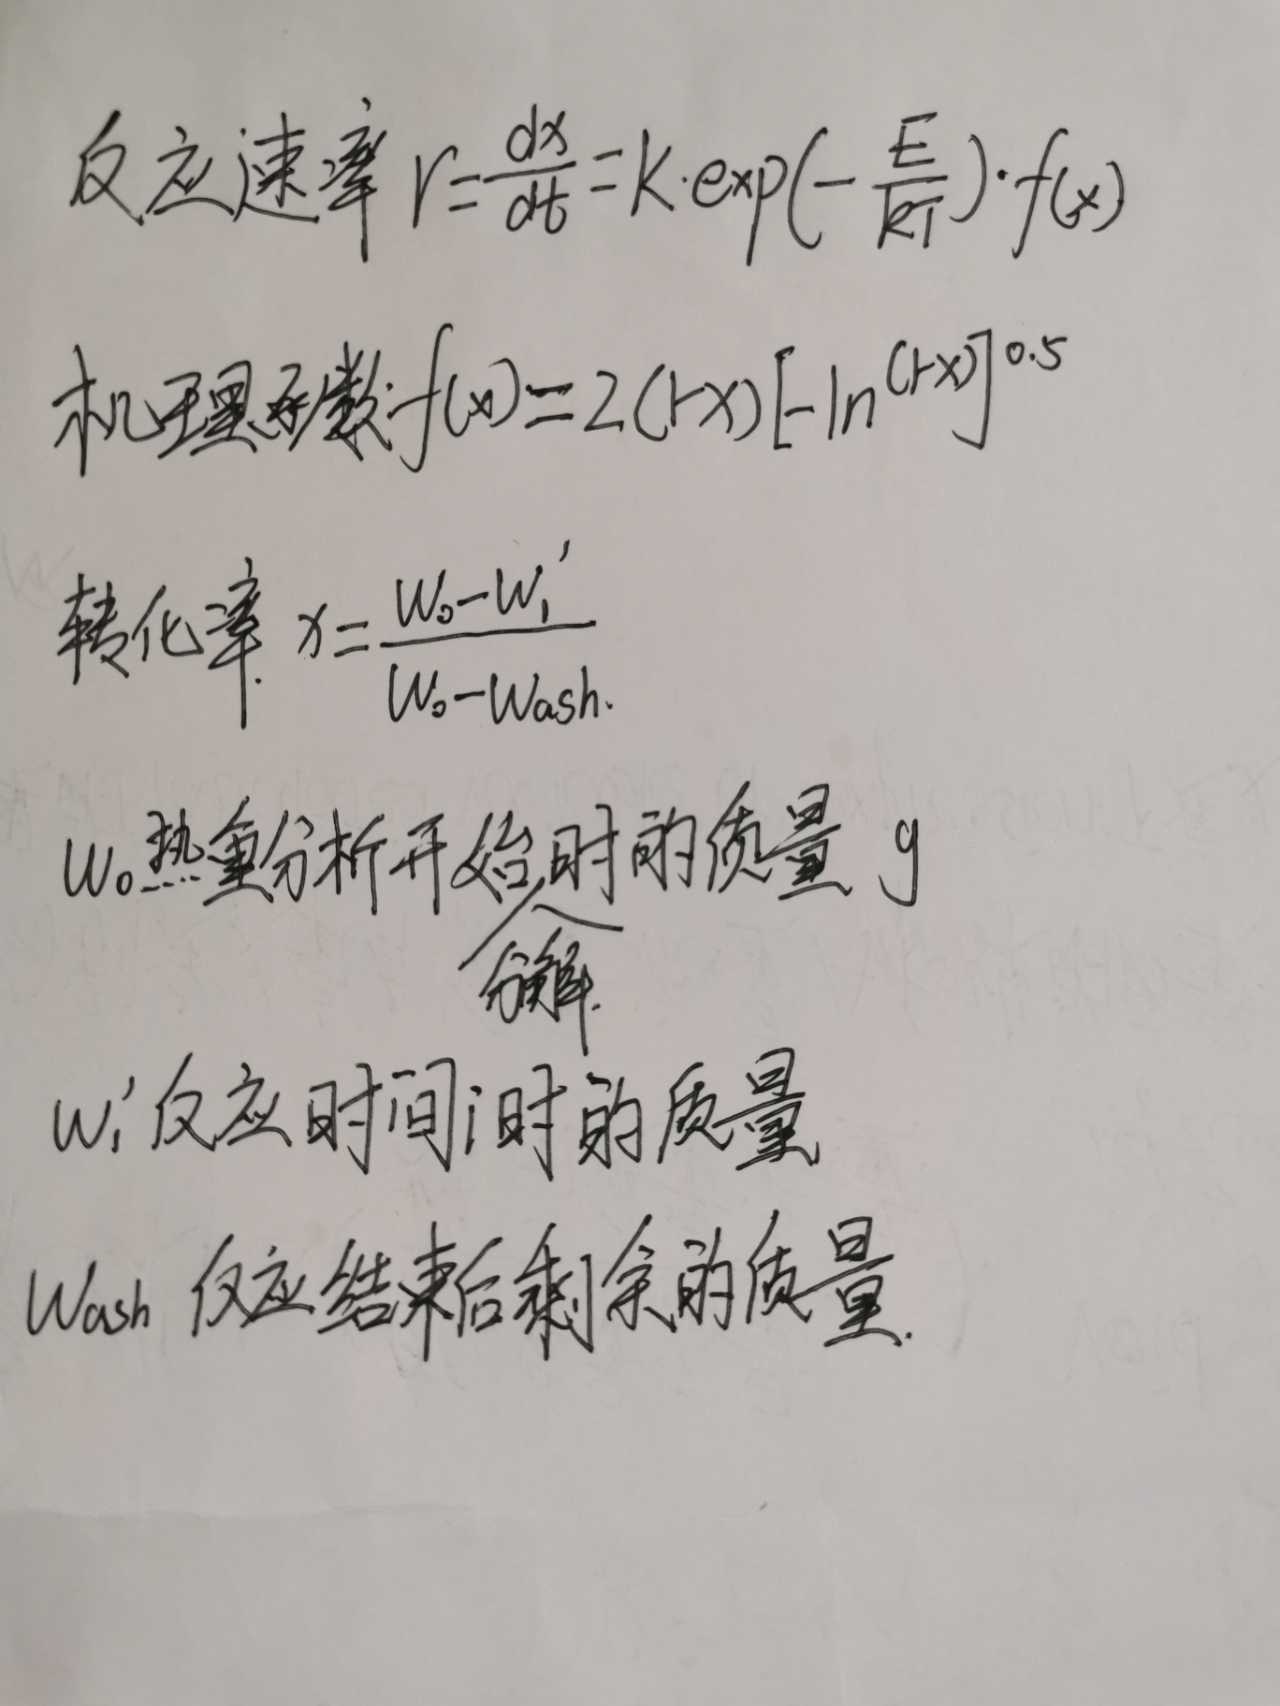 反应速率 r=dx/dt=k·exp(-E/RT)·f(x)
机理函数 f(x)=2(1-x)[-ln(1-x)]^0.5
转化率 x=(W₀-Wᵢ')/(W₀-Wash)
W₀热重分析开始时的质量 g
分解
Wᵢ'反应时间i时的质量
Wash 反应结束后剩余的质量.